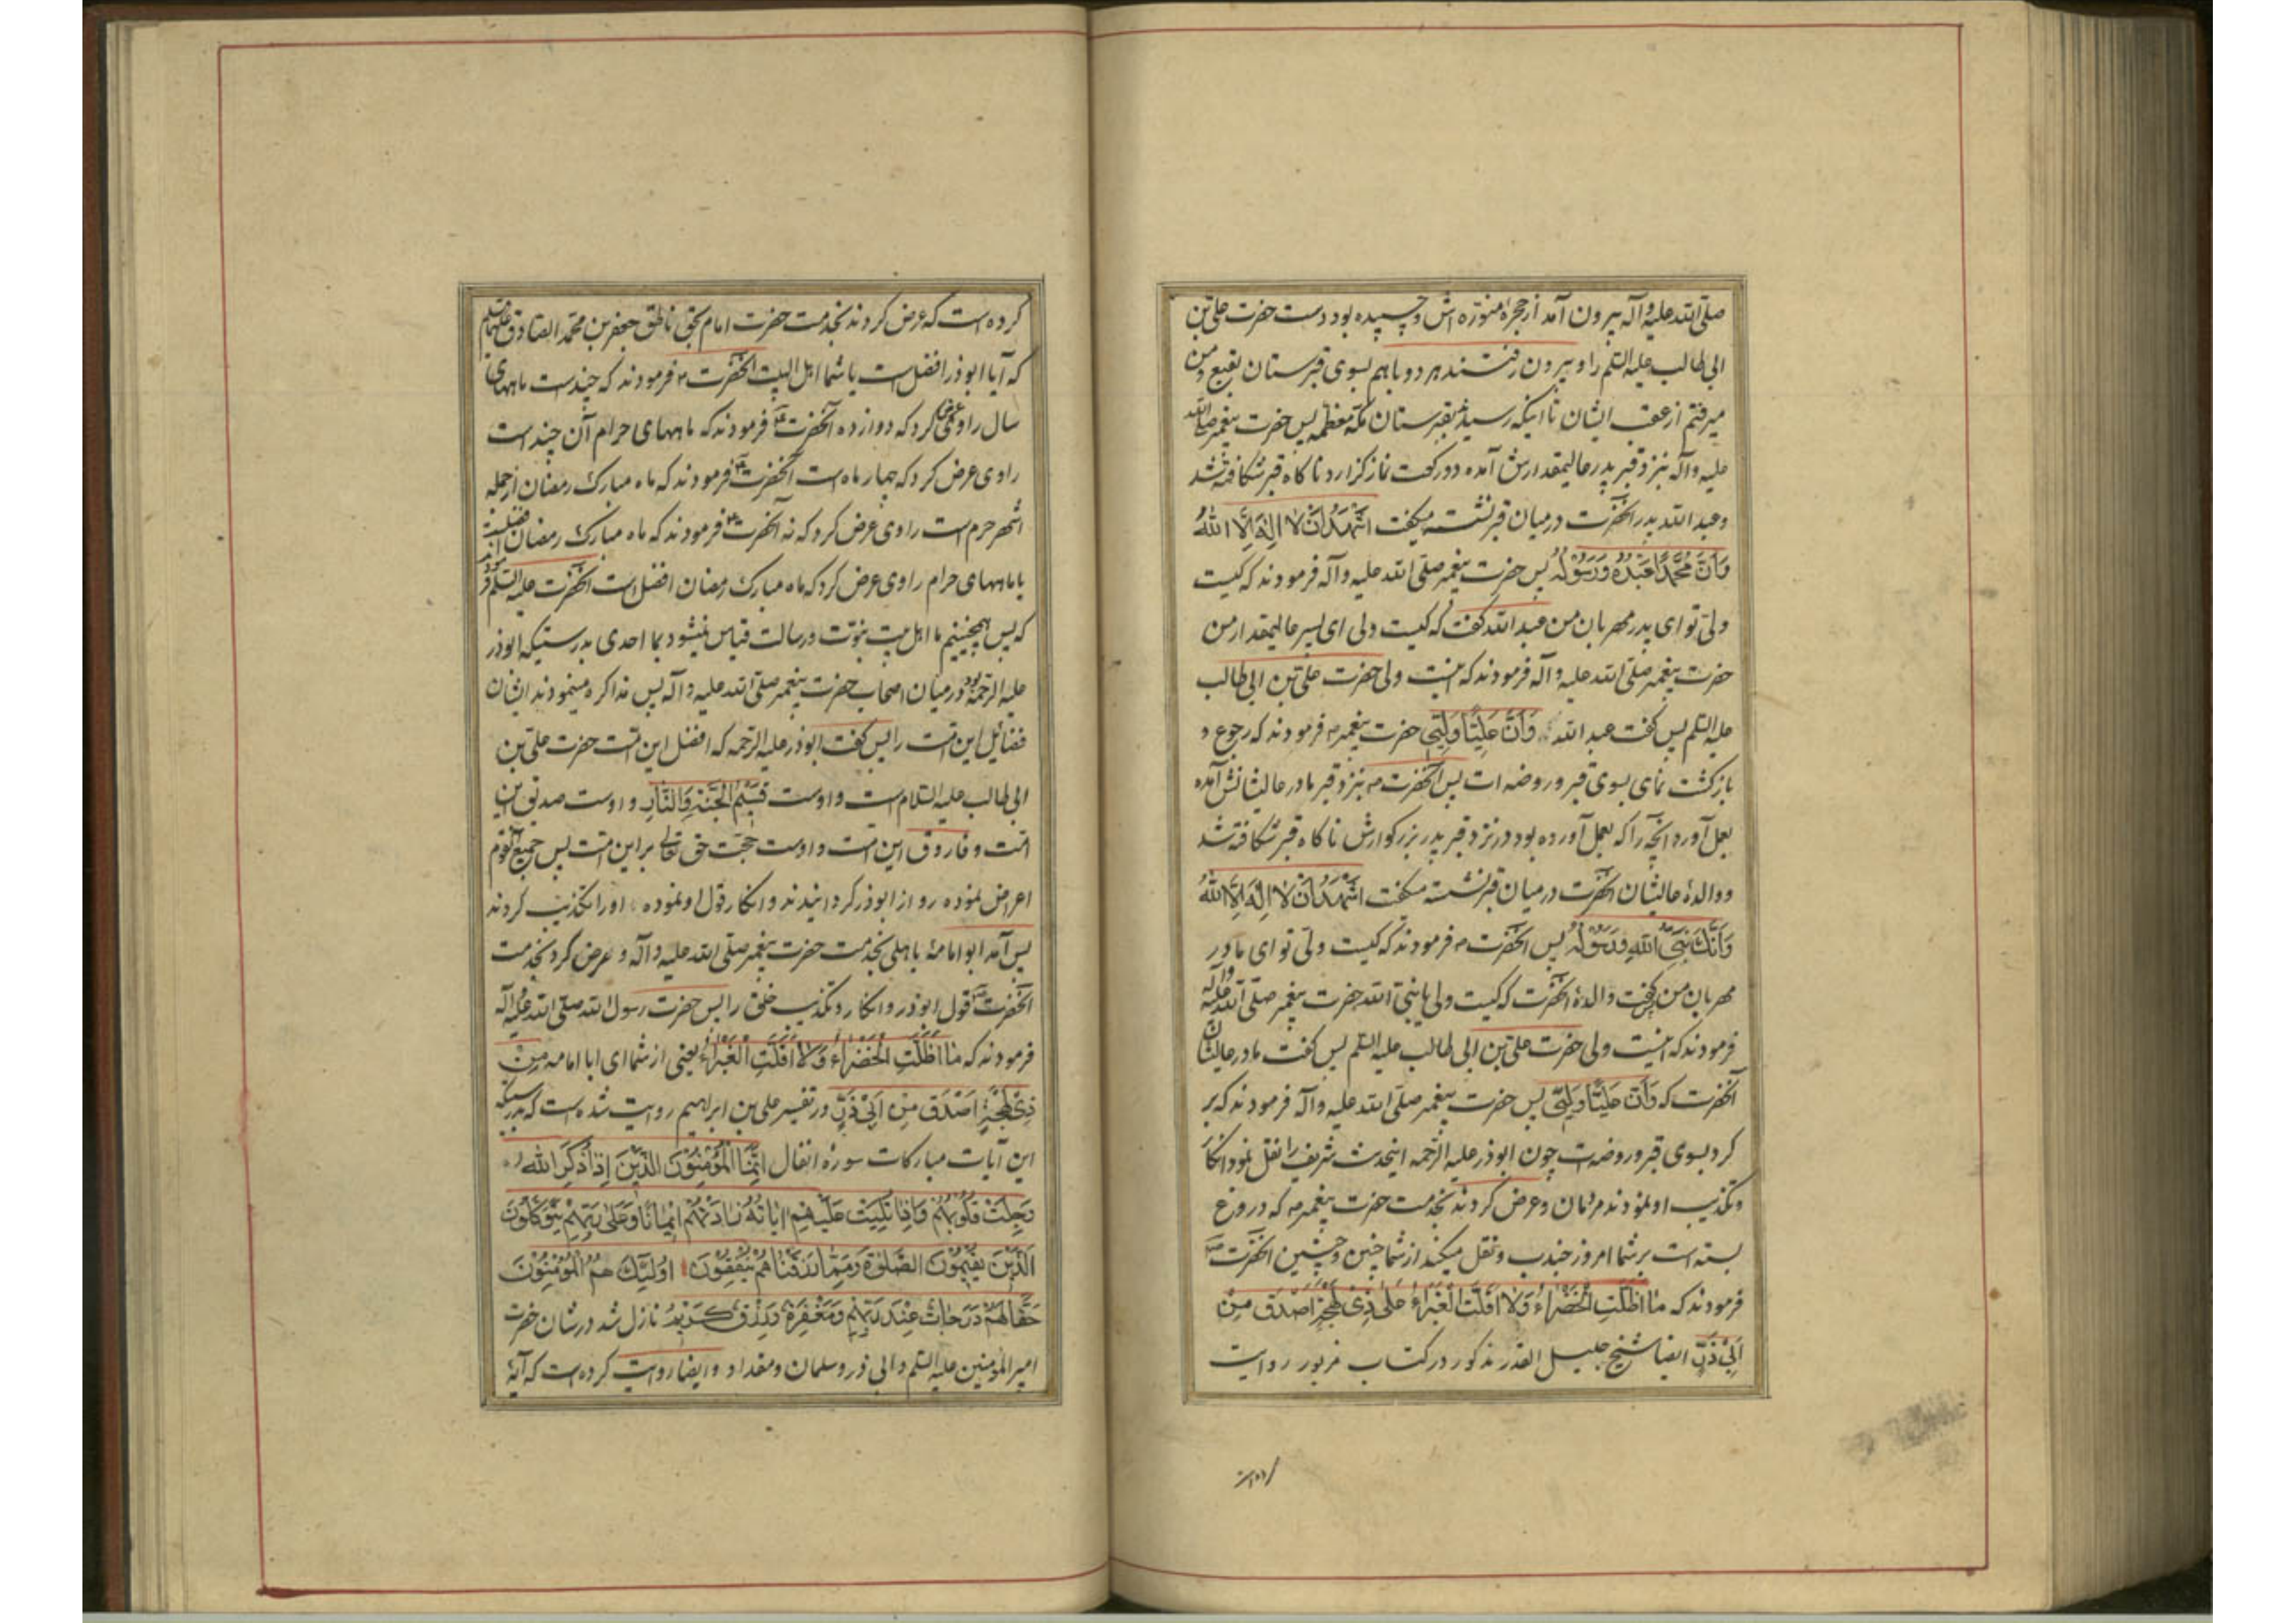 صلی الله علیه وآله بیرون آمد از حجرهٔ منوره اش و چسپیده بود دست حضرت علی بن
ابی طالب علیه السلم را و بیرون رفتند هر دو باهم بسوی قبرستان بقیع و من
میرفتم از عقب ایشان تا اینکه رسیدند بقبرستان مکه معظمه پس حضرت پیغمبر صلی الله
علیه وآله بنزد قبر پدر عالیمقدارش آمده دو رکعت نماز گزارد ناکاه قبر شکافته شد
وعبد الله پدر آنحضرت درمیان قبر نشسته میکفت اَشْهَدُ اَنْ لا اِلهَ اِلَّا اللهُ
وَاَنَّ مُحَمَّدًا عَبْدُهُ وَرَسُولُهُ پس حضرت پیغمبر صلی الله علیه وآله فرمودند که کیست
ولی تو ای پدر مهربان من عبد الله کفت که کیست ولی ای پسر عالیمقدار من
حضرت پیغمبر صلی الله علیه وآله فرمودند که اینست ولی حضرت علی بن ابی طالب
علیه السلم پس کفت عبد الله وَاَنَّ عَلِیًّا وَلِیّی حضرت پیغمبر ص فرمودند که رجوع و
بازکشت نمای بسوی قبر و روضه ات پس آنحضرت ص بنزد قبر مادر عالیشانش آمده
بعمل آورد آنچه را که بعمل آورده بود در نزد قبر پدر بزرکوارش ناکاه قبر شکافته شد
ووالدهٔ عالیشان آنحضرت درمیان قبر نشسته میکفت اَشْهَدُ اَنْ لا اِلهَ اِلَّا اللهُ
وَاَنَّكَ نَبِیُّ اللهِ وَرَسُولُهُ پس آنحضرت ص فرمودند که کیست ولی تو ای مادر
مهربان من کفت والدهٔ آنحضرت که کیست ولی یا نبی الله حضرت پیغمبر صلی الله علیه وآله
فرمودند که اینست ولی حضرت علی بن ابی طالب علیه السلم پس کفت مادر عالیشان
آنحضرت که وَاَنَّ عَلِیًّا وَلِیّی پس حضرت پیغمبر صلی الله علیه وآله فرمودند که بر
کرد بسوی قبر و روضه ات چون ابوذر علیه الرحمه اینحدیث شریف را نقل نمود انکار
وتکذیب او نمودند مردمان وعرض کردند بخدمت حضرت پیغمبر ص که دروغ
بسته است بر شما امروز جندب ونقل میکند از شما چنین وچنین آنحضرت ص
فرمودند که ما اَظَلَّتِ الْخَضْراءُ وَلا اَقَلَّتِ الْغَبْراءُ عَلی ذی لَهْجَةٍ اَصْدَقَ مِنْ
اَبی ذَرٍّ ایضا شیخ جلیل القدر مذکور در کتاب مزبور روایت
کرده است که عرض کردند بخدمت حضرت امام بحق ناطق جعفر بن محمد الصادق علیهما السلم
که آیا ابوذر افضل است یا شما اهل البیت آنحضرت ع فرمودند که چند است ماههای
سال راوی عرض کرد که دوازده آنحضرت ع فرمودند که ماههای حرام آن چند است
راوی عرض کرد که چهار ماه است آنحضرت ع فرمودند که ماه مبارک رمضان ازجمله
اشهر حرم است راوی عرض کرد که نه آنحضرت ع فرمودند که ماه مبارک رمضان افضل است
یا ماههای حرام راوی عرض کرد که ماه مبارک رمضان افضل است آنحضرت علیه السلم فرمودند
که پس همچنینیم ما اهل بیت نبوت ورسالت قیاس نمیشود بما احدی بدرستیکه ابوذر
علیه الرحمه بود درمیان اصحاب حضرت پیغمبر صلی الله علیه وآله پس مذاکره مینمودند ایشان
فضائل این امت را پس کفت ابوذر علیه الرحمه که افضل این امت حضرت علی بن
ابی طالب علیه السلام است و اوست قَسیمُ الْجَنَّةِ وَالنَّارِ و اوست صدیق این
امت وفاروق این امت و اوست حجت حق تعالی بر این امت پس جمیع آنقوم
اعراض نموده رو از ابوذر کردانیدند وانکار قول او نموده اورا تکذیب کردند
پس آمد ابو امامهٔ باهلی بخدمت حضرت پیغمبر صلی الله علیه وآله وعرض کرد بخدمت
آنحضرت قول ابوذر وانکار وتکذیب خلق را پس حضرت رسول الله صلی الله علیه وآله
فرمودند که ما اَظَلَّتِ الْخَضْراءُ وَلا اَقَلَّتِ الْغَبْراءُ یعنی از شما ای ابا امامه مِنْ
ذی لَهْجَةٍ اَصْدَقَ مِنْ اَبی ذَرٍّ ودر تفسیر علی بن ابراهیم روایت شده است که بدرستیکه
این آیات مبارکات سورهٔ انفال اِنَّمَا الْمُؤْمِنُونَ الَّذینَ اِذا ذُکِرَ اللهُ
وَجِلَتْ قُلُوبُهُمْ وَاِذا تُلِیَتْ عَلَیْهِمْ ایاتُهُ زادَتْهُمْ ایمانًا وَعَلی رَبِّهِمْ یَتَوَکَّلُونَ
اَلَّذینَ یُقیمُونَ الصَّلوةَ وَمِمَّا رَزَقْناهُمْ یُنْفِقُونَ اُولئِكَ هُمُ الْمُؤْمِنُونَ
حَقًّا لَهُمْ دَرَجاتٌ عِنْدَ رَبِّهِمْ وَمَغْفِرَةٌ وَرِزْقٌ کَریمٌ نازل شد درشان حضرت
امیر المؤمنین علیه السلم وابی ذر وسلمان ومقداد وایضا روایت کرده است که آیهٔ